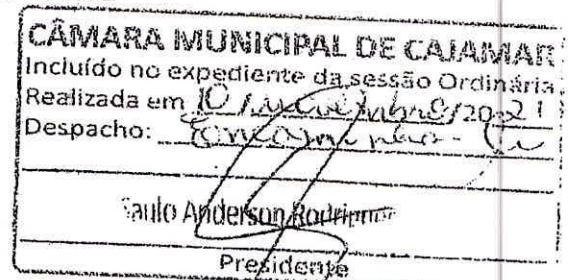 CÂMARA MUNICIPAL DE CAJAMAR
Incluído no expediente da sessão Ordinária
Realizada em 10 / novembro / 2021
Despacho: Encaminha-se
Saulo Anderson Rodrigues
Presidente